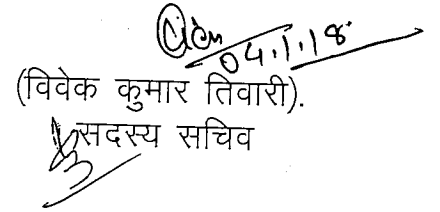 04.1.18
(विवेक कुमार तिवारी).
सदस्य सचिव